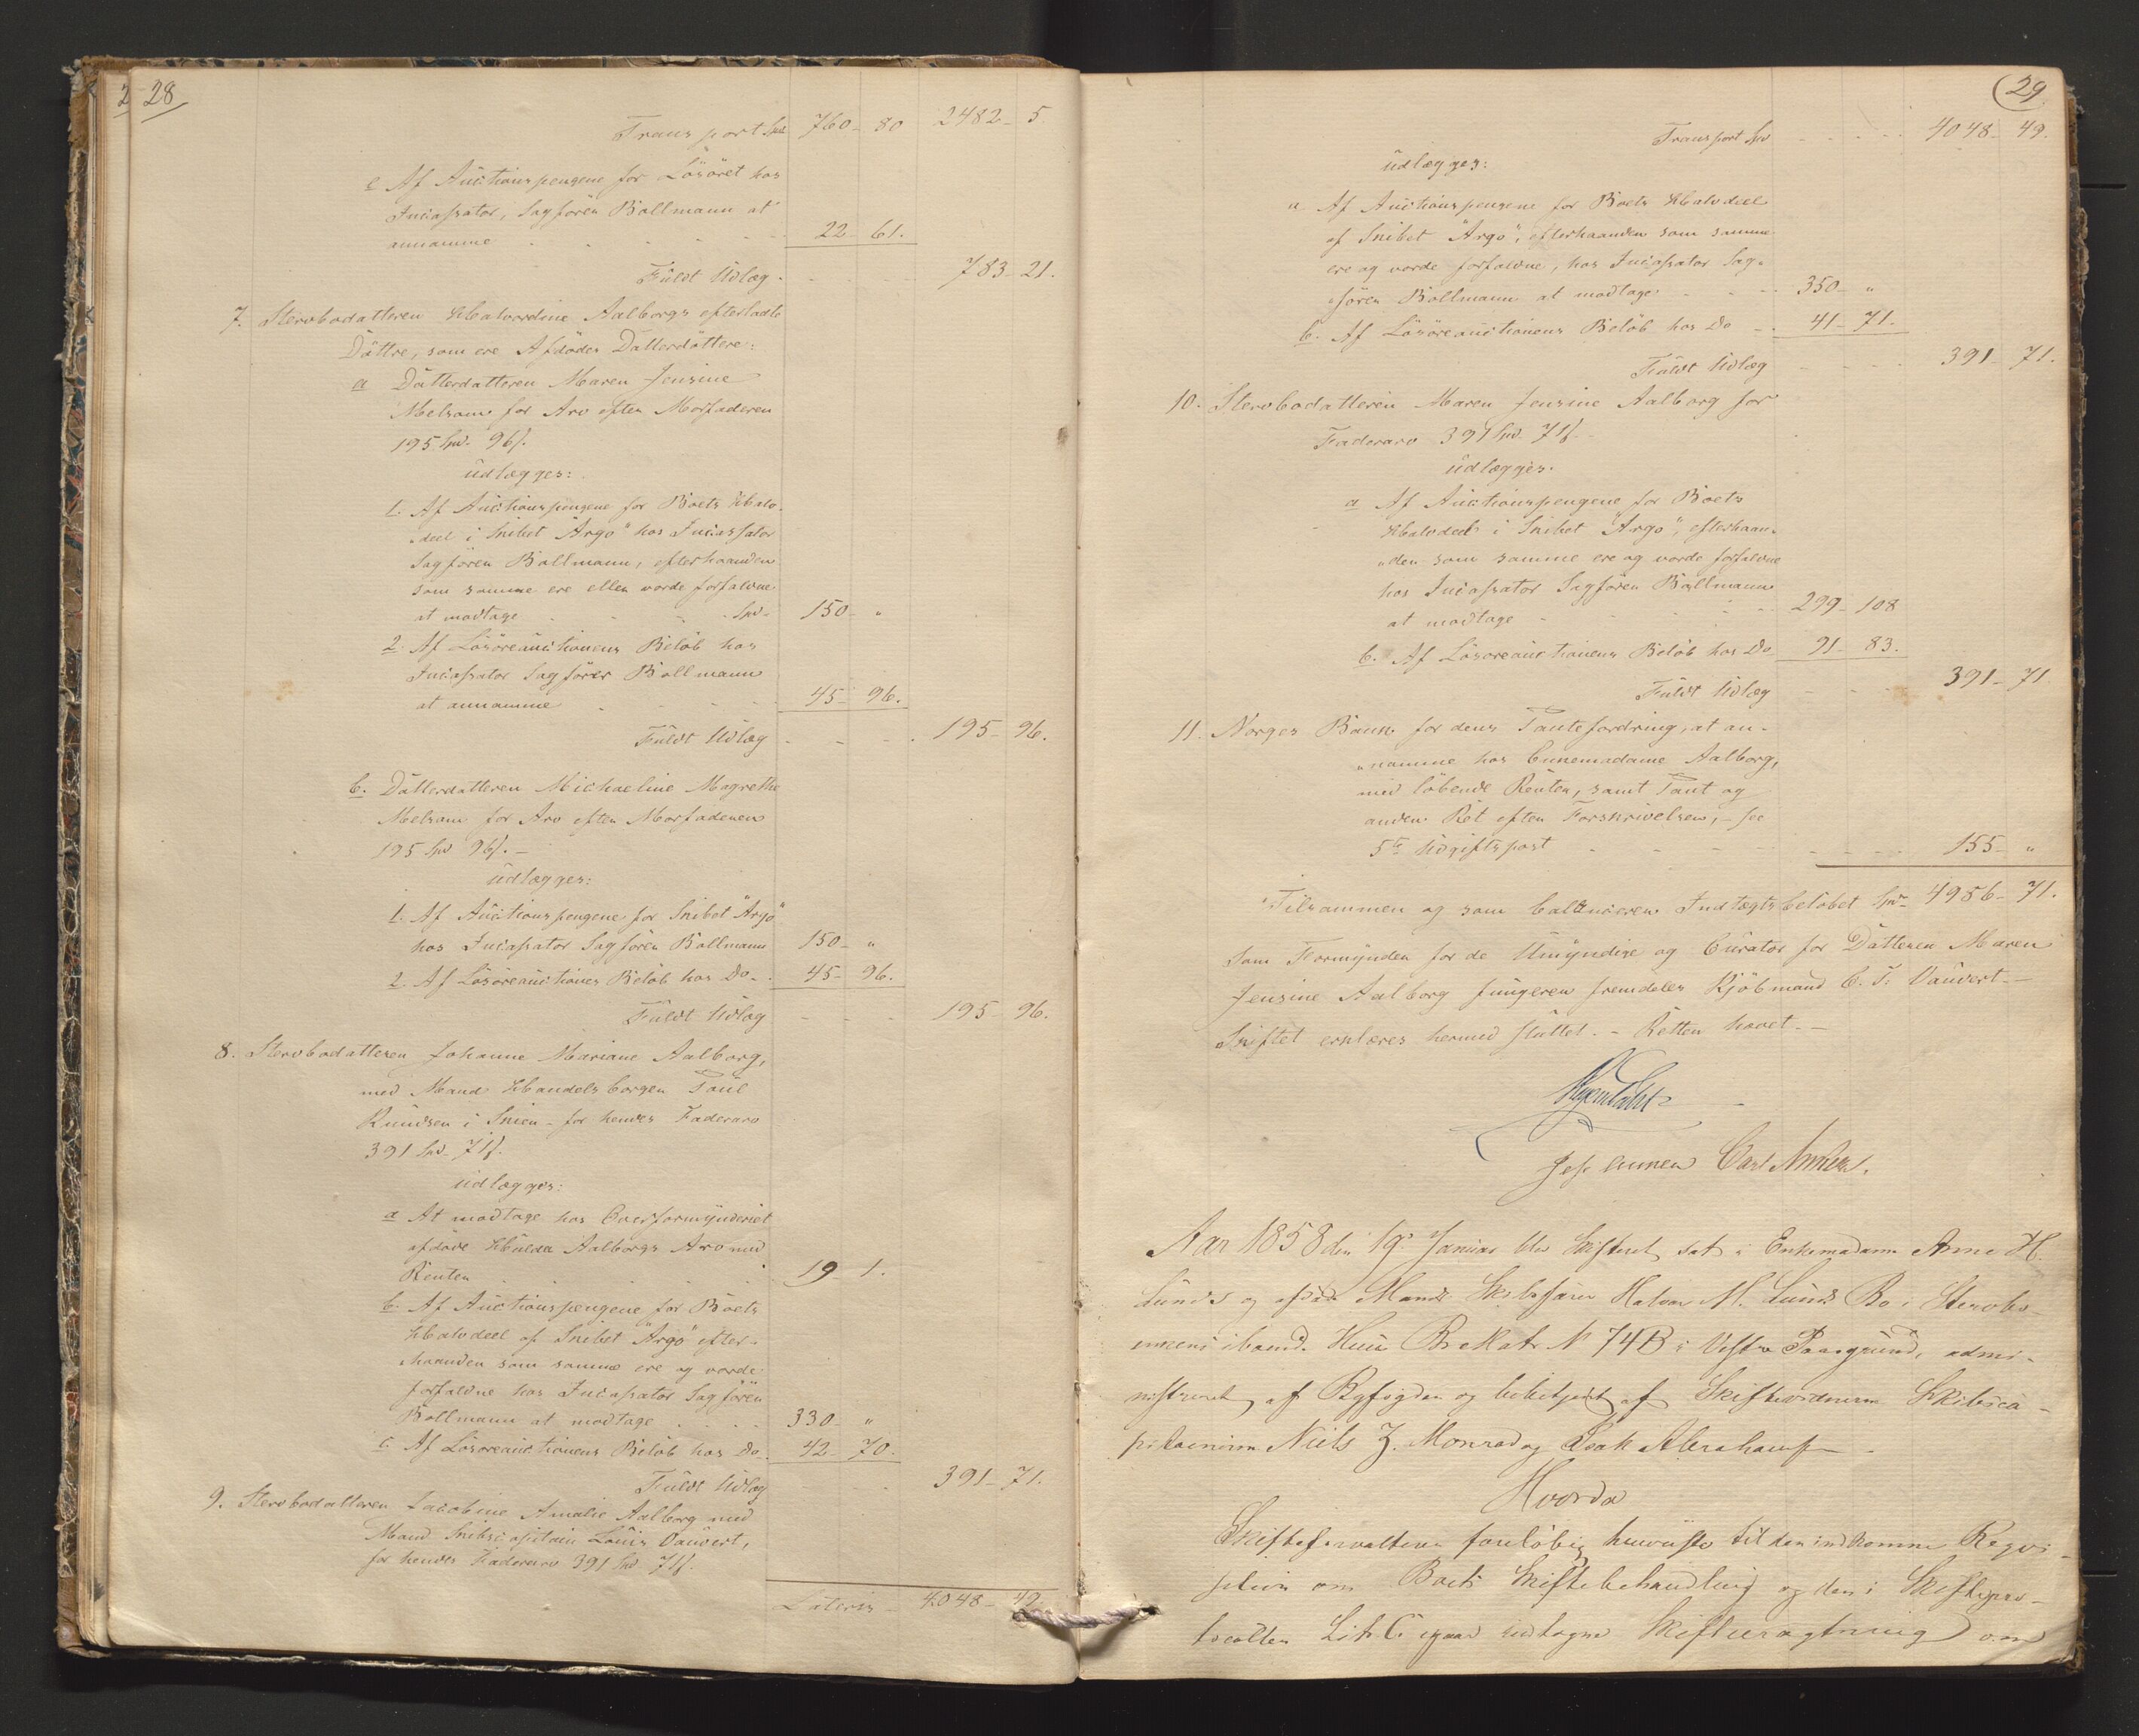 28
Transport Spd 760 - 80 2482 - 5
e Af Auctionspengene for Lösöret hos
Incassator, Sagförer Bollmann at
annamme 22 - 61.
Fuldt Udlæg 783 - 21.
7. Stervbodatteren Halvordine Aalborgs efterladte
Döttre, som ere Afdödes Datterdöttere:
a Datterdatteren Maren Jensine
Melsom for Arv efter Morfaderen
195 Spd. 96 s.
udlægges:
1. Af Auctionspengene for Boets Halv-
deel i Skibet "Argo" hos Incassator
Sagförer Bollmann, efterhaanden
som samme ere eller vorde forfaldne
at modtage Spd. 150 - "
2. Af Lösöreauctionens Belöb hos
Incassator Sagförer Bollmann
at annamme 45 - 96.
Fuldt Udlæg 195 - 96.
b. Datterdatteren Michaeline Magrethe
Melsom for Arv efter Morfaderen
195 Spd 96 s. -
udlægges:
1. Af Auctionspengene for Skibet "Argo"
hos Incassator Sagförer Bollmann 150 - "
2. Af Lösöreauctiones Belöb hos Do - 45 - 96.
Fuldt Udlæg 195 - 96.
8. Stervbodatteren Johanne Mariane Aalborg,
med Mand Handelsborger Paul
Knudsen i Skien - for hendes Faderarv
391 Spd. 71 s.
udlægges:
a At modtage hos Overformynderiet
afdöde Hulda Aalborgs Arv med
Renter 19 - 1.
b. Af Auctionspengene for Boets
Halvdeel af Skibet "Argo" efter-
haanden som samme ere og vorde
forfaldne hos Incassator Sagförer
Bollmann at modtage 330 - "
c. Af Lösöreauctionens Belöb hos Do - 42 - 70.
Fuldt Udlæg 391 - 71.
9. Stervbodatteren Jacobine Amalie Aalborg med
Mand Skibscapitain Louis Vauvert,
for hendes Faderarv 391 Spd 71 s.
Lateris - 4048 - 49
29
Transport Spd 4048 - 49.
udlægges:
a Af Auctionspengene for Boets Halvdeel
af Skibet "Argo", efterhaanden som samme
ere og vorde forfaldne, hos Incassator Sag-
förer Bollmann at modtage 350 - "
b. Af Lösöreauctionens Belöb hos Do - 41 - 71.
Fuldt Udlæg 391 - 71.
10. Stervbodatteren Maren Jensine Aalborg for
Faderarv 391 Spd 71 s. -
udlægges.
a Af Auctionspengene for Boets
Halvdeel i Skibet "Argo", efterhaan-
den som samme ere og vorde forfaldne
hos Incassator Sagförer Bollmann
at modtage 299 - 108
b. Af Lösöreauctionens Belöb hos Do 91 - 83.
Fuldt Udlæg 391 - 71.
11. Norges Bank for dens Pantefordring, at an-
namme hos Enkemadame Aalborg,
med löbende Renter, samt Pant og
anden Ret efter Forskrivelsen, - see
5te Udgiftspost 155 - "
Tilsammen og som balancerer Indtægtsbelöbet Spd 4956 - 71.
Som Formynder for de Umyndige og Curator for Datteren Maren
Jensine Aalborg fungerer fremdeles Kjöbmand C. F. Vauvert. -
Skiftet erklæres hermed sluttet. - Retten hævet. -
Carl
Aar 1858 den 19de Januar blev Skifteret sat i Enkemadame Anne H.
Lunds og afdöde Mands Skibsförer Halvor M. Lunds Bo i Stervbo-
enkens iboend. Huus Br Matr N 74B i Vestre Porsgrund, admi-
nistreret af Byfogden og bebitjent af Skiftevidnerne Skibsca-
pitainerne Niels J. Monrad og Isak Abrahamsen
Hvorda
Skifteforvalteren foreløbig henviste til den indkomne Reqvi-
sition om Boets Skiftebehandling og den i Skiftepro-
tocollen Litr C igaar indtagne Skifteragtning om